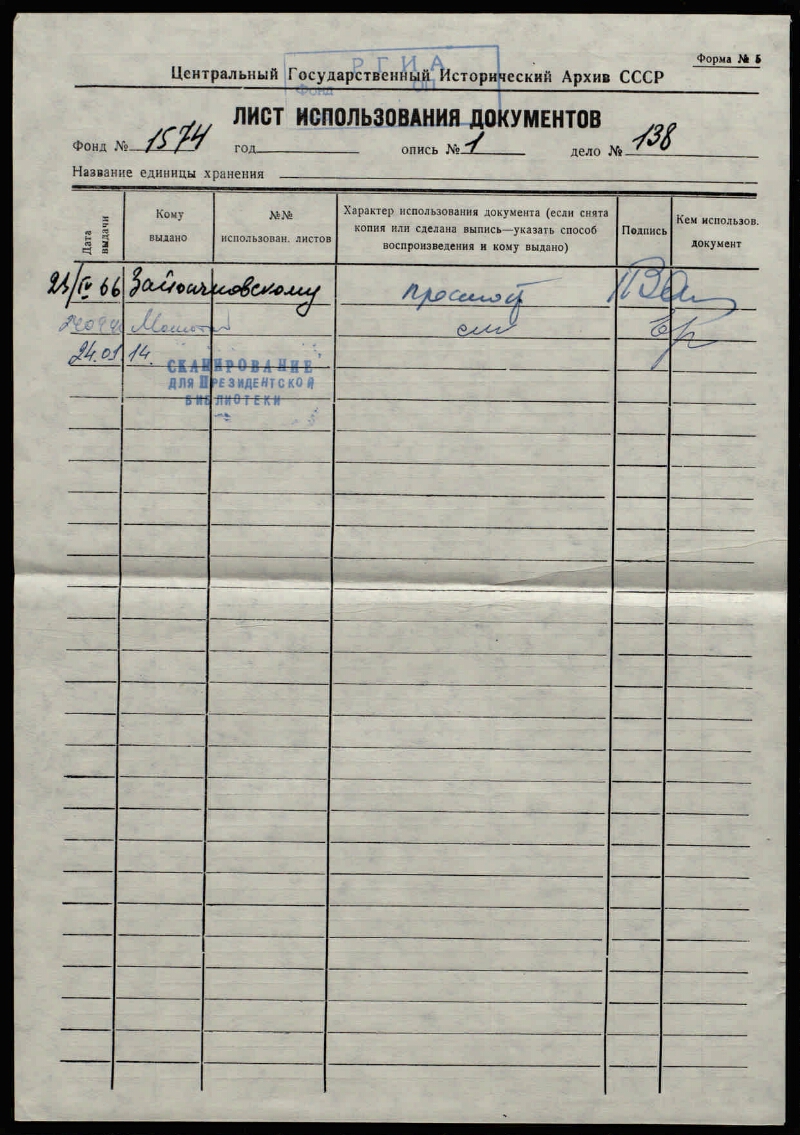 Форма № 5
РГИА
Фонд ОП
Центральный Государственный Исторический Архив СССР
ЛИСТ ИСПОЛЬЗОВАНИЯ ДОКУМЕНТОВ
Фонд № 1574 год опись № 1 дело № 138
Название единицы хранения
Дата выдачи
Кому выдано
№№ использован. листов
Характер использования документа (если снята
копия или сделана выпись—указать способ
воспроизведения и кому выдано)
Подпись
Кем использов. документ
IV 66 Зайончковскому просмотр
24.01 14.
СКАНИРОВАНИЕ
ДЛЯ ПРЕЗИДЕНТСКОЙ
БИБЛИОТЕКИ